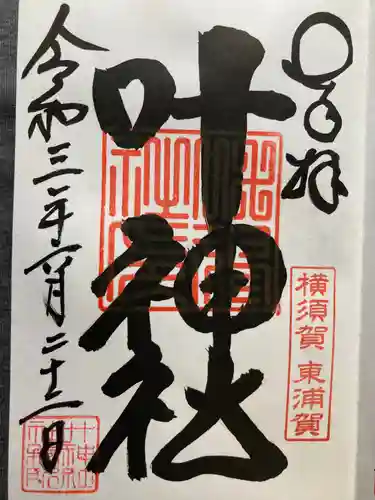 奉拝
横須賀 東浦賀
叶神社
令和三年六月二十二日